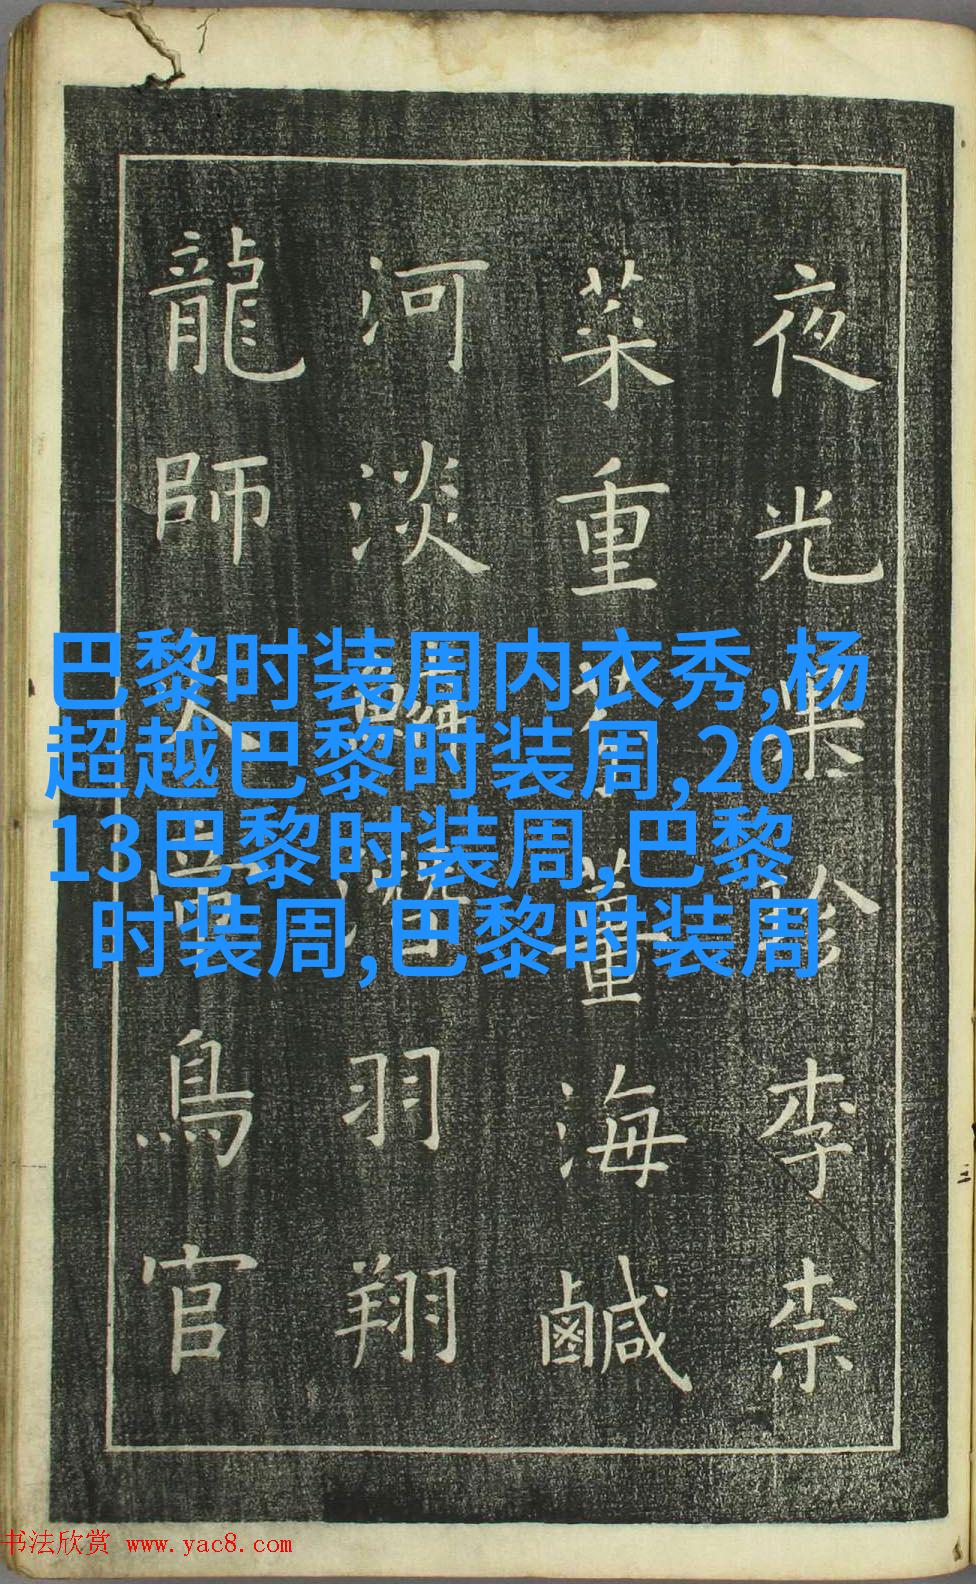 夜光果珍李柰
菜重芥薑海鹹
河淡鱗潛羽翔
龍師火帝鳥官
巴黎时装周内衣秀,杨
超越巴黎时装周,20
13巴黎时装周,巴黎
时装周,巴黎时装周
书法欣赏 www.yac8.com